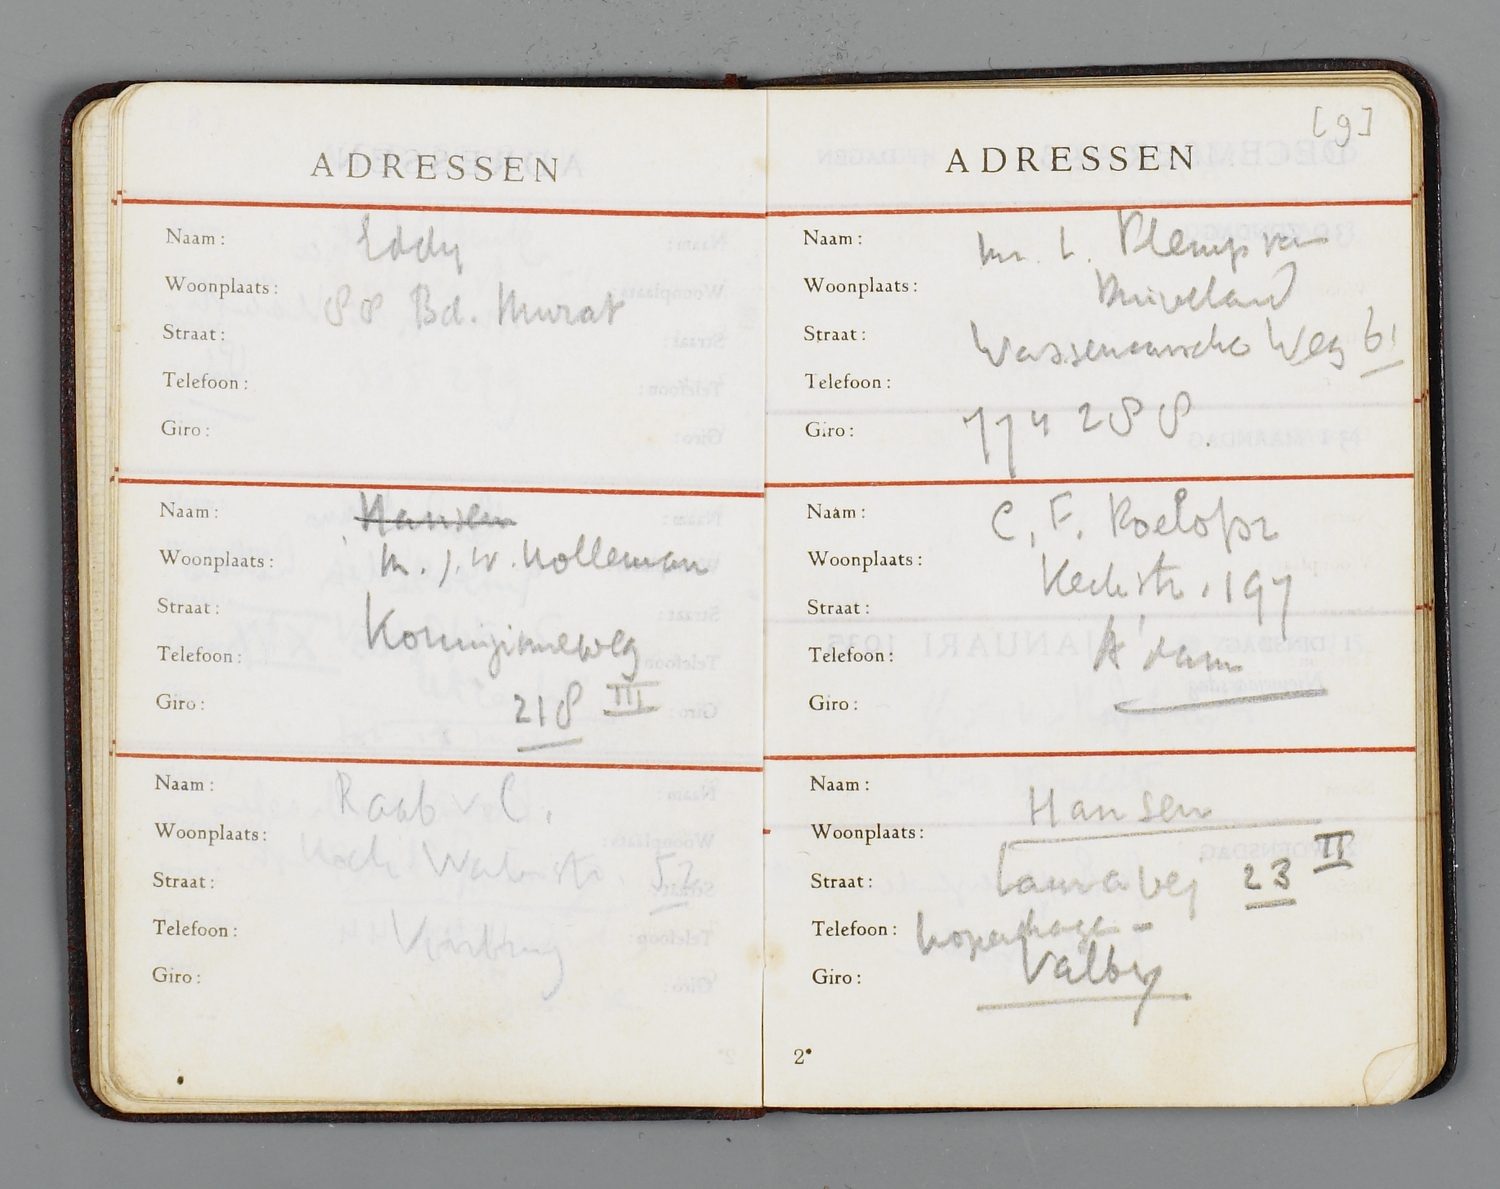 ADRESSEN
Naam: Eddy
Woonplaats: 88 Bd. Murat
Straat:
Telefoon:
Giro:
Naam: Hansen
Woonplaats: Mr. J. W. Nolleman
Straat:
Telefoon:
Giro: 218 III
Naam: Raab v. C.
Woonplaats:
Straat: 52
Telefoon: Voorburg
Giro:
[9]
ADRESSEN
Naam: Mr. L. Plemp van
Woonplaats: Duiveland
Straat: Wassenaarsche Weg 61
Telefoon:
Giro: 774288.
Naam: C. F. Roelofsz
Woonplaats: Kerkstr. 197
Straat:
Telefoon: A'dam
Giro:
Naam: Hansen
Woonplaats: II
Straat: 23
Telefoon: Kopenhage -
Giro: Valby
2*